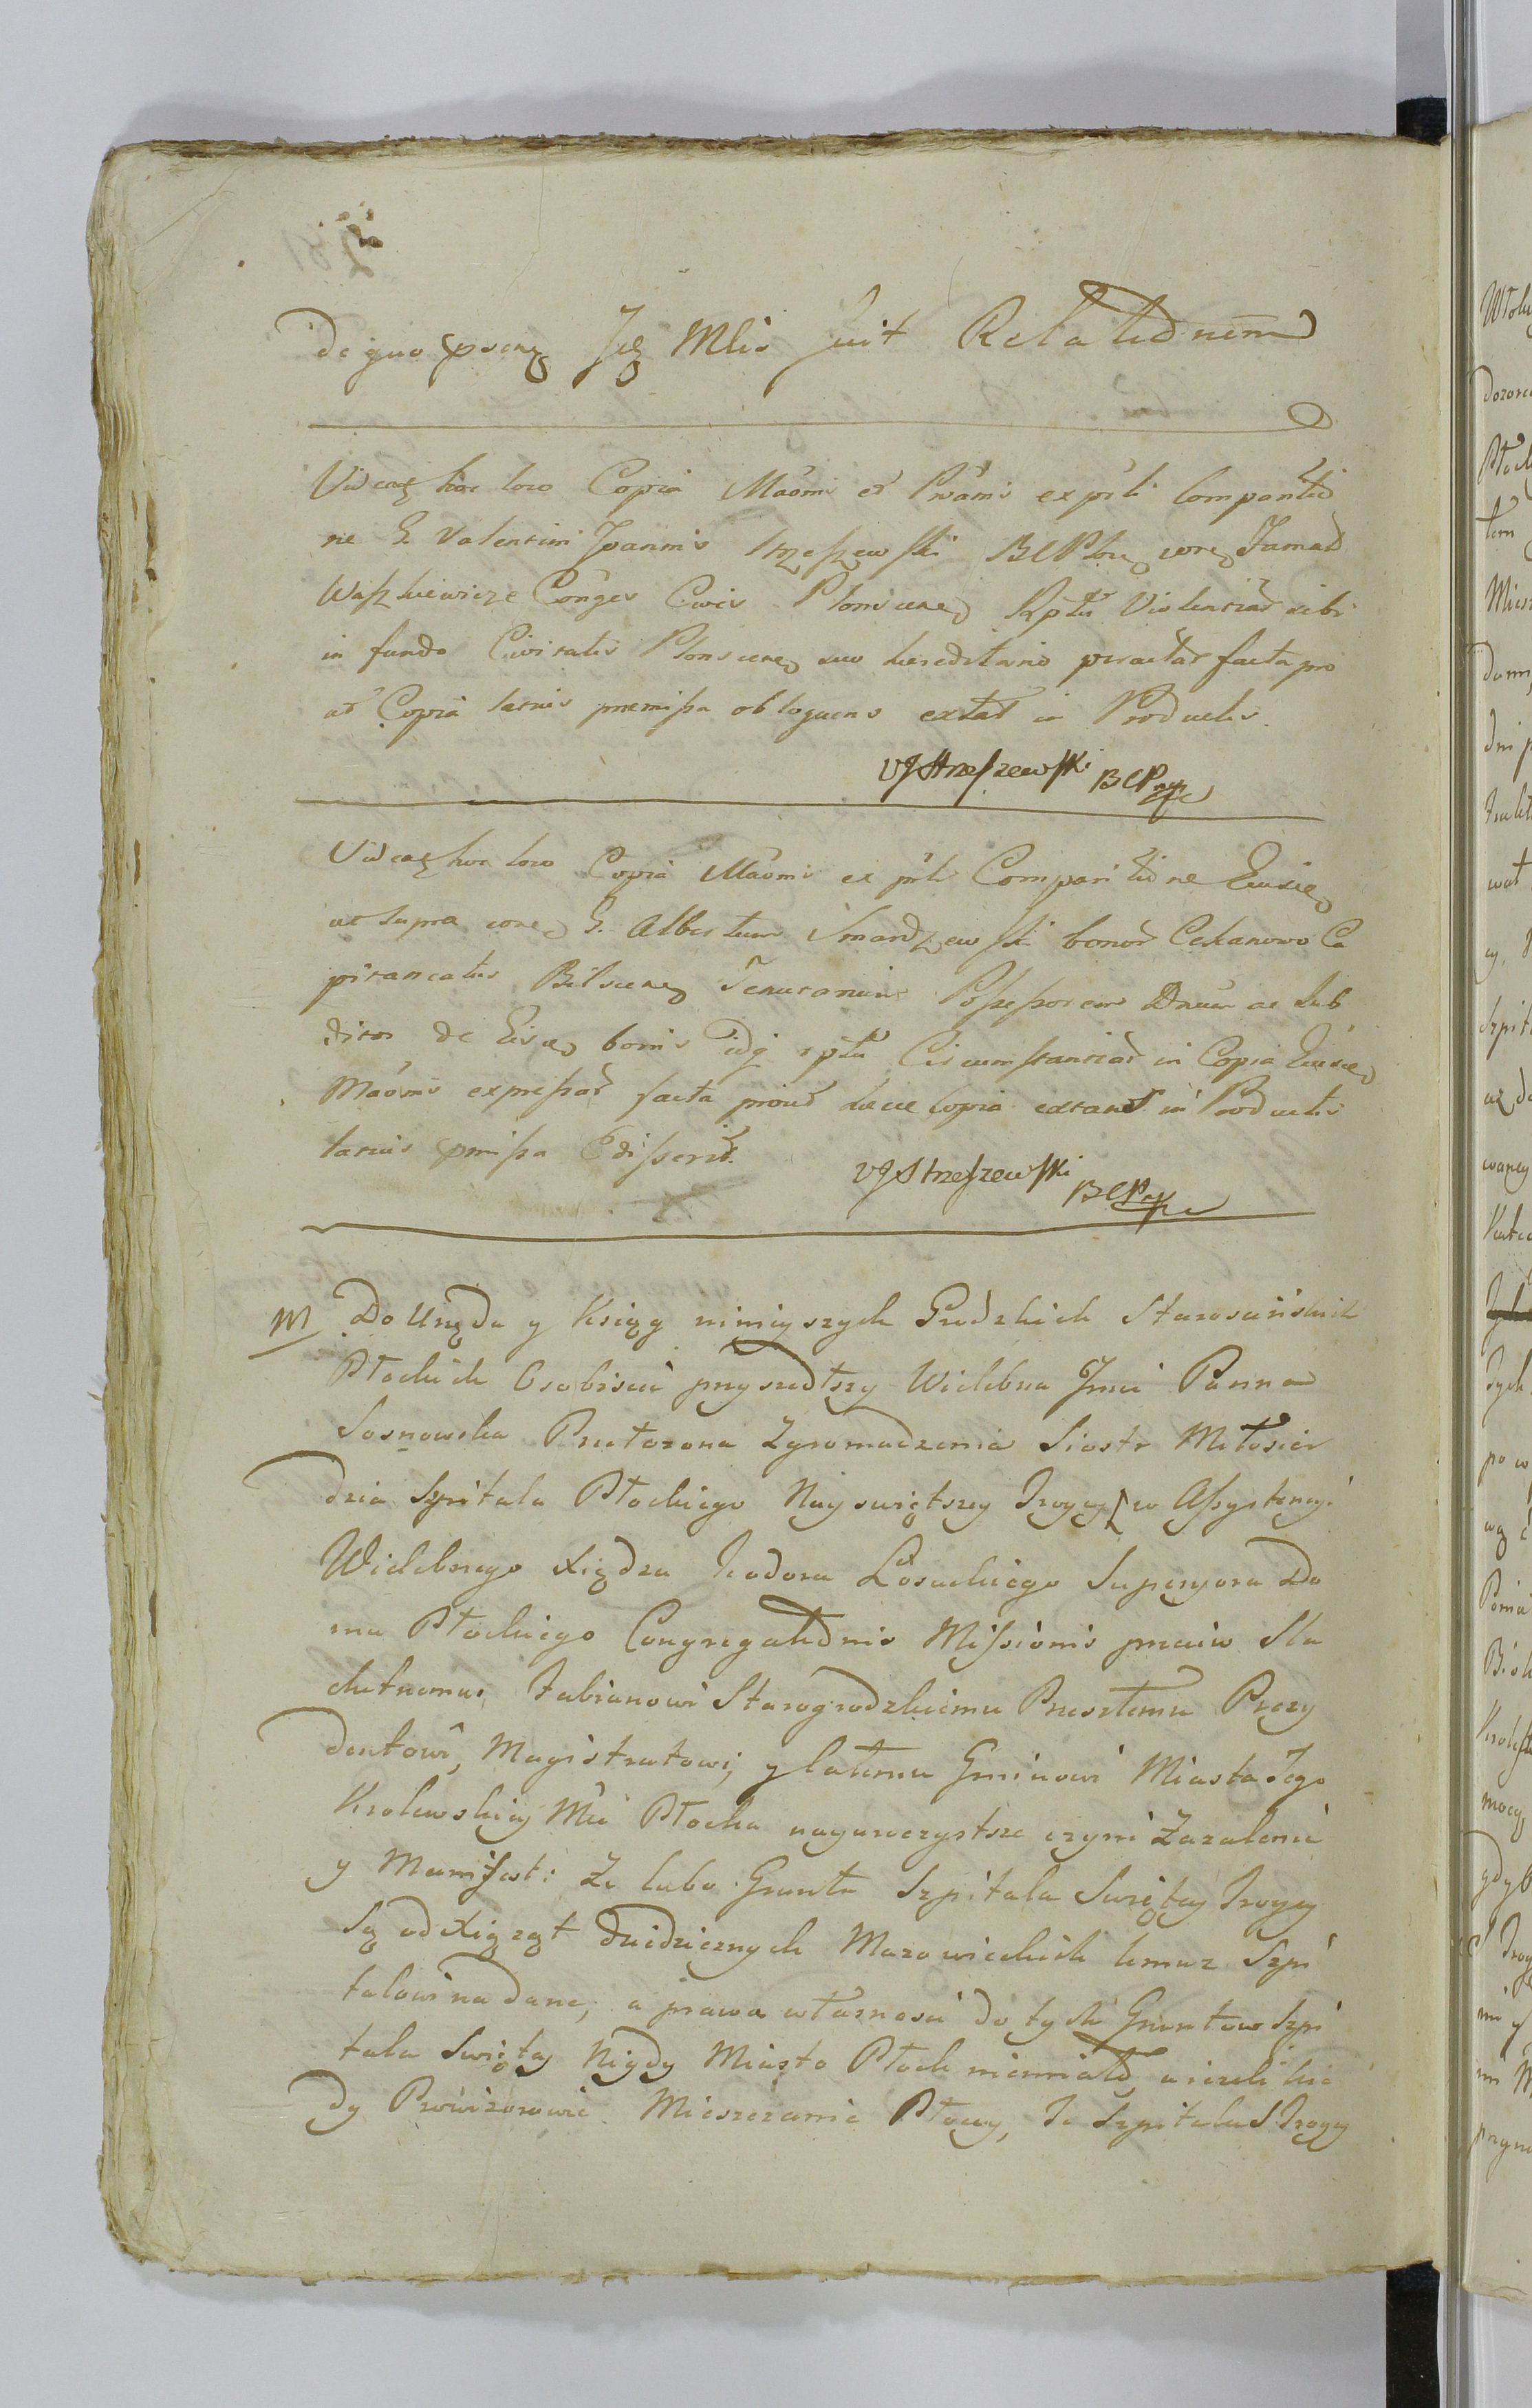 de quo psens Jdq Mlis fuit Relationem
Videatq hoc loco Copia Maōmi et Prōāmi ex prli Comparitio
ne G. Valentini Joannis Strzeszewski BCPlon cone Famat
Waszkiewicze Conges Cives Plonscen Rptu Violentiar sibi
in fundo Civitatis Plonscen suo hereditario peractar facta pro
ut Copia latius premissa obloquens extat in Productis.
VJStrzeszewski BCP mp
Videatq hoc loco Copia Maōmi ex prli Comparitione Eiusd
ut supra cone G. Albertum Smardzewski bonor Cekanowo Ca
pitaneatus Bilscen Tenutarium Possessorem Dnum ac Sub
ditos de Eisd bonis idq rptu Circumstantiar in Copia Eiusd
Maōmi expressar facta prout haece Copia extans in Productis
latius pmissa Edisserit.
VJStrzeszewski BCP mp
M Do Urzędu y Xsiąg ninieyszych Grodzkich Starościńskich
Płockich Osobiście przyszedłszy Wielebna Jmci Panna
Sosnowska Przełozona Zgromadzenia Siostr Miłosier
dzia Szpitala Płockiego Nayswiętszey Troycy w Assystencyi
Wielebnego Xiędza Teodora Łosackiego Superyora Do
mu Płockiego Congregationis Missionis przeciw Sla
chetnemu Fabianowi Starogrodzkiemu Przeszłemu Prezy
dentowi, Magistratowi, y całemu Gminowi Miasta Jego
Krolewskiey Mci Płocka nayuroczystsze czyni Zazalenie
y Manifest: Ze lubo Grunta Szpitala Swiętey Troycy
Są od Xiąząt dziedzicznych Mazowieckich temuz Szpi
talowi nadane, a prawa własnosci do tych Gruntow Szpi
tala Swiętey Nigdy Miasto Płock niemiało, a iezeli kie
dy Prowizorowie Mieszczanie Płoccy, Te Szpitala S Troycy